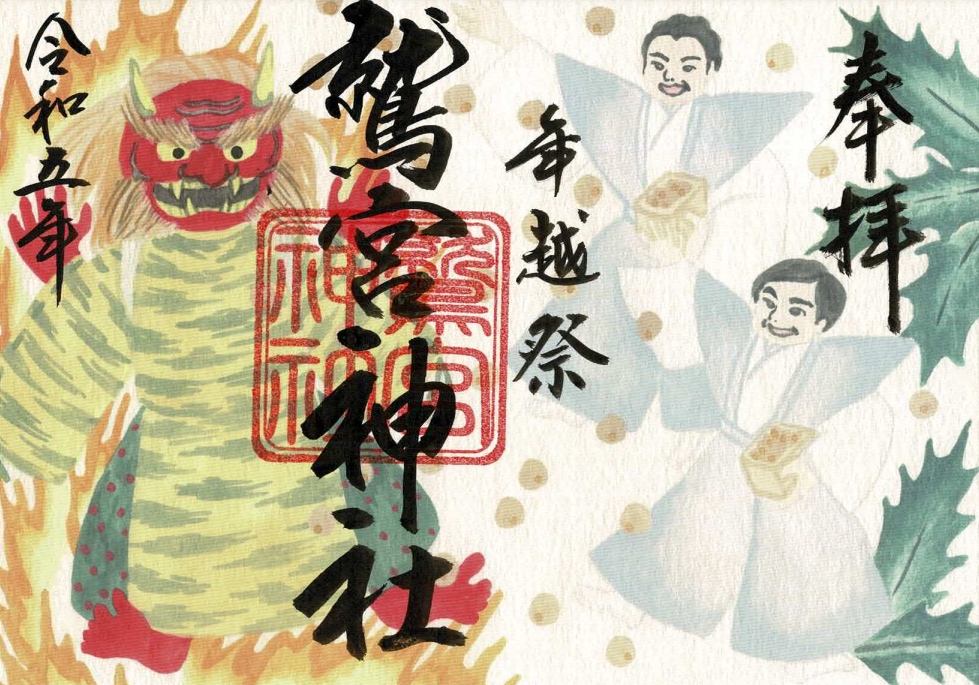 奉拝
年越祭
鷲宮神社
鷲宮
神社
令和五年